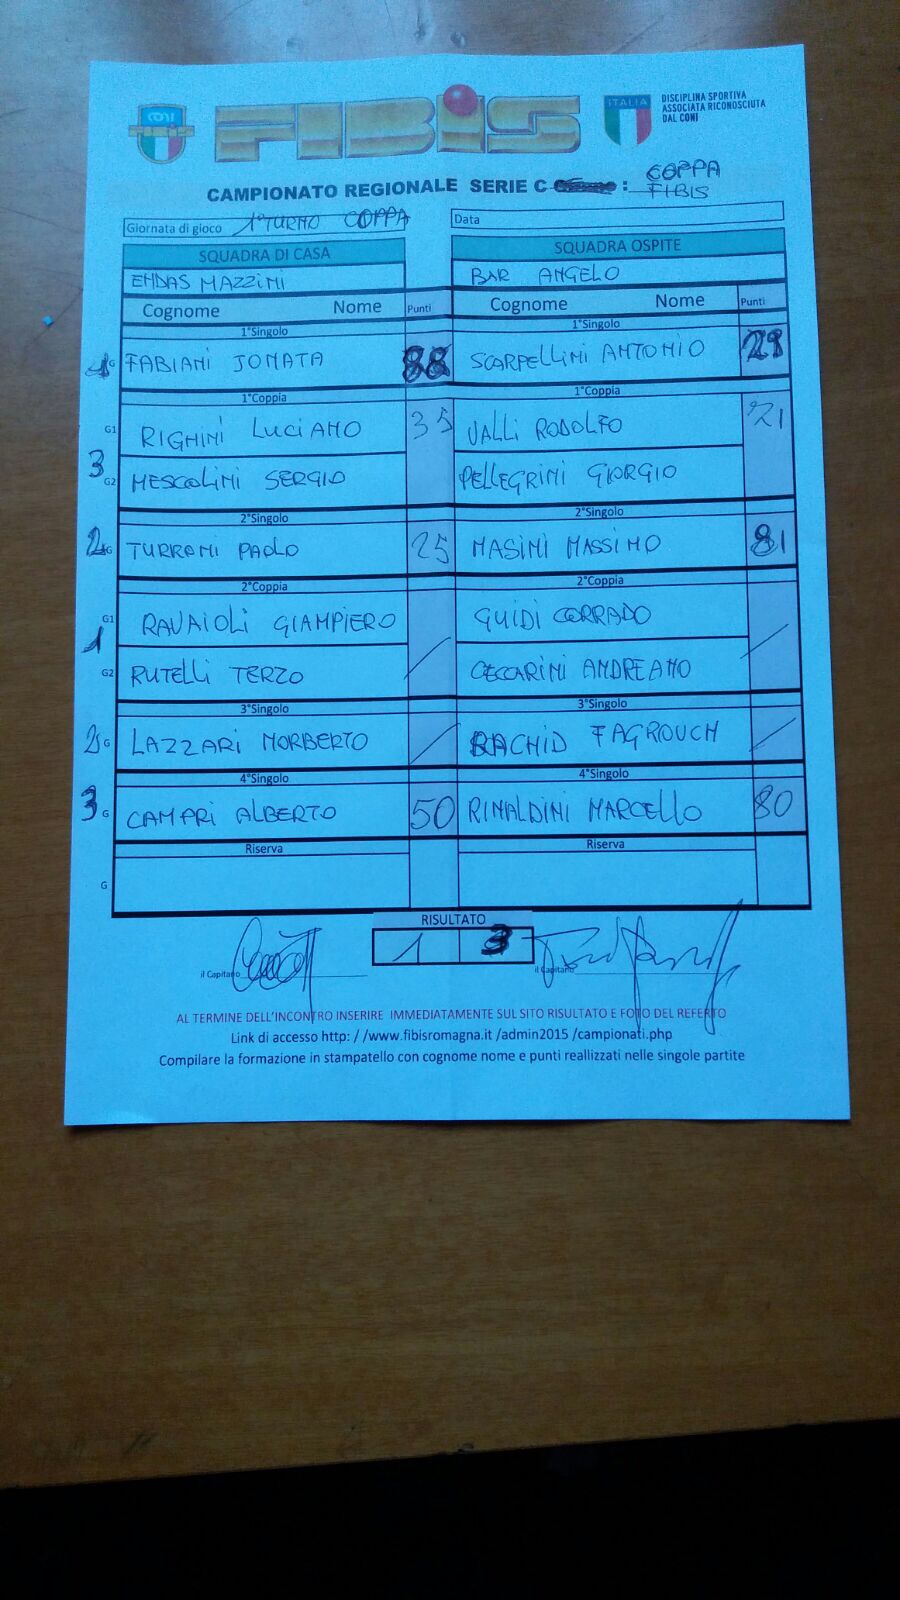 CONI
FIBIS
FIBIS
ITALIA
DISCIPLINA SPORTIVA
ASSOCIATA RICONOSCIUTA
DAL CONI
CAMPIONATO REGIONALE SERIE C : COPPA FIBIS
Giornata di gioco 1° TURNO COPPA Data
SQUADRA DI CASA SQUADRA OSPITE
ENDAS MAZZINI BAR ANGELO
Cognome Nome Punti Cognome Nome Punti
1°Singolo 1°Singolo
1 G FABIANI JONATA 88 SCARPELLINI ANTONIO 29
1°Coppia 1°Coppia
G1 RIGHINI LUCIANO 35 VALLI RODOLFO 21
3
G2 MESCOLINI SERGIO PELLEGRINI GIORGIO
2°Singolo 2°Singolo
2 G TURRONI PAOLO 25 MASINI MASSIMO 81
2°Coppia 2°Coppia
G1 RAVAIOLI GIAMPIERO GUIDI CORRADO
1
G2 RUTELLI TERZO / CECCARINI ANDREANO /
3°Singolo 3°Singolo
2 G LAZZARI NORBERTO / RACHID FAGROUCH /
4°Singolo 4°Singolo
3 G CAMPRI ALBERTO 50 RINALDINI MARCELLO 80
Riserva Riserva
G
RISULTATO
il Capitano 1 3 il Capitano
AL TERMINE DELL'INCONTRO INSERIRE IMMEDIATAMENTE SUL SITO RISULTATO E FOTO DEL REFERTO
Link di accesso http: / /www.fibisromagna.it /admin2015 /campionati.php
Compilare la formazione in stampatello con cognome nome e punti reallizzati nelle singole partite